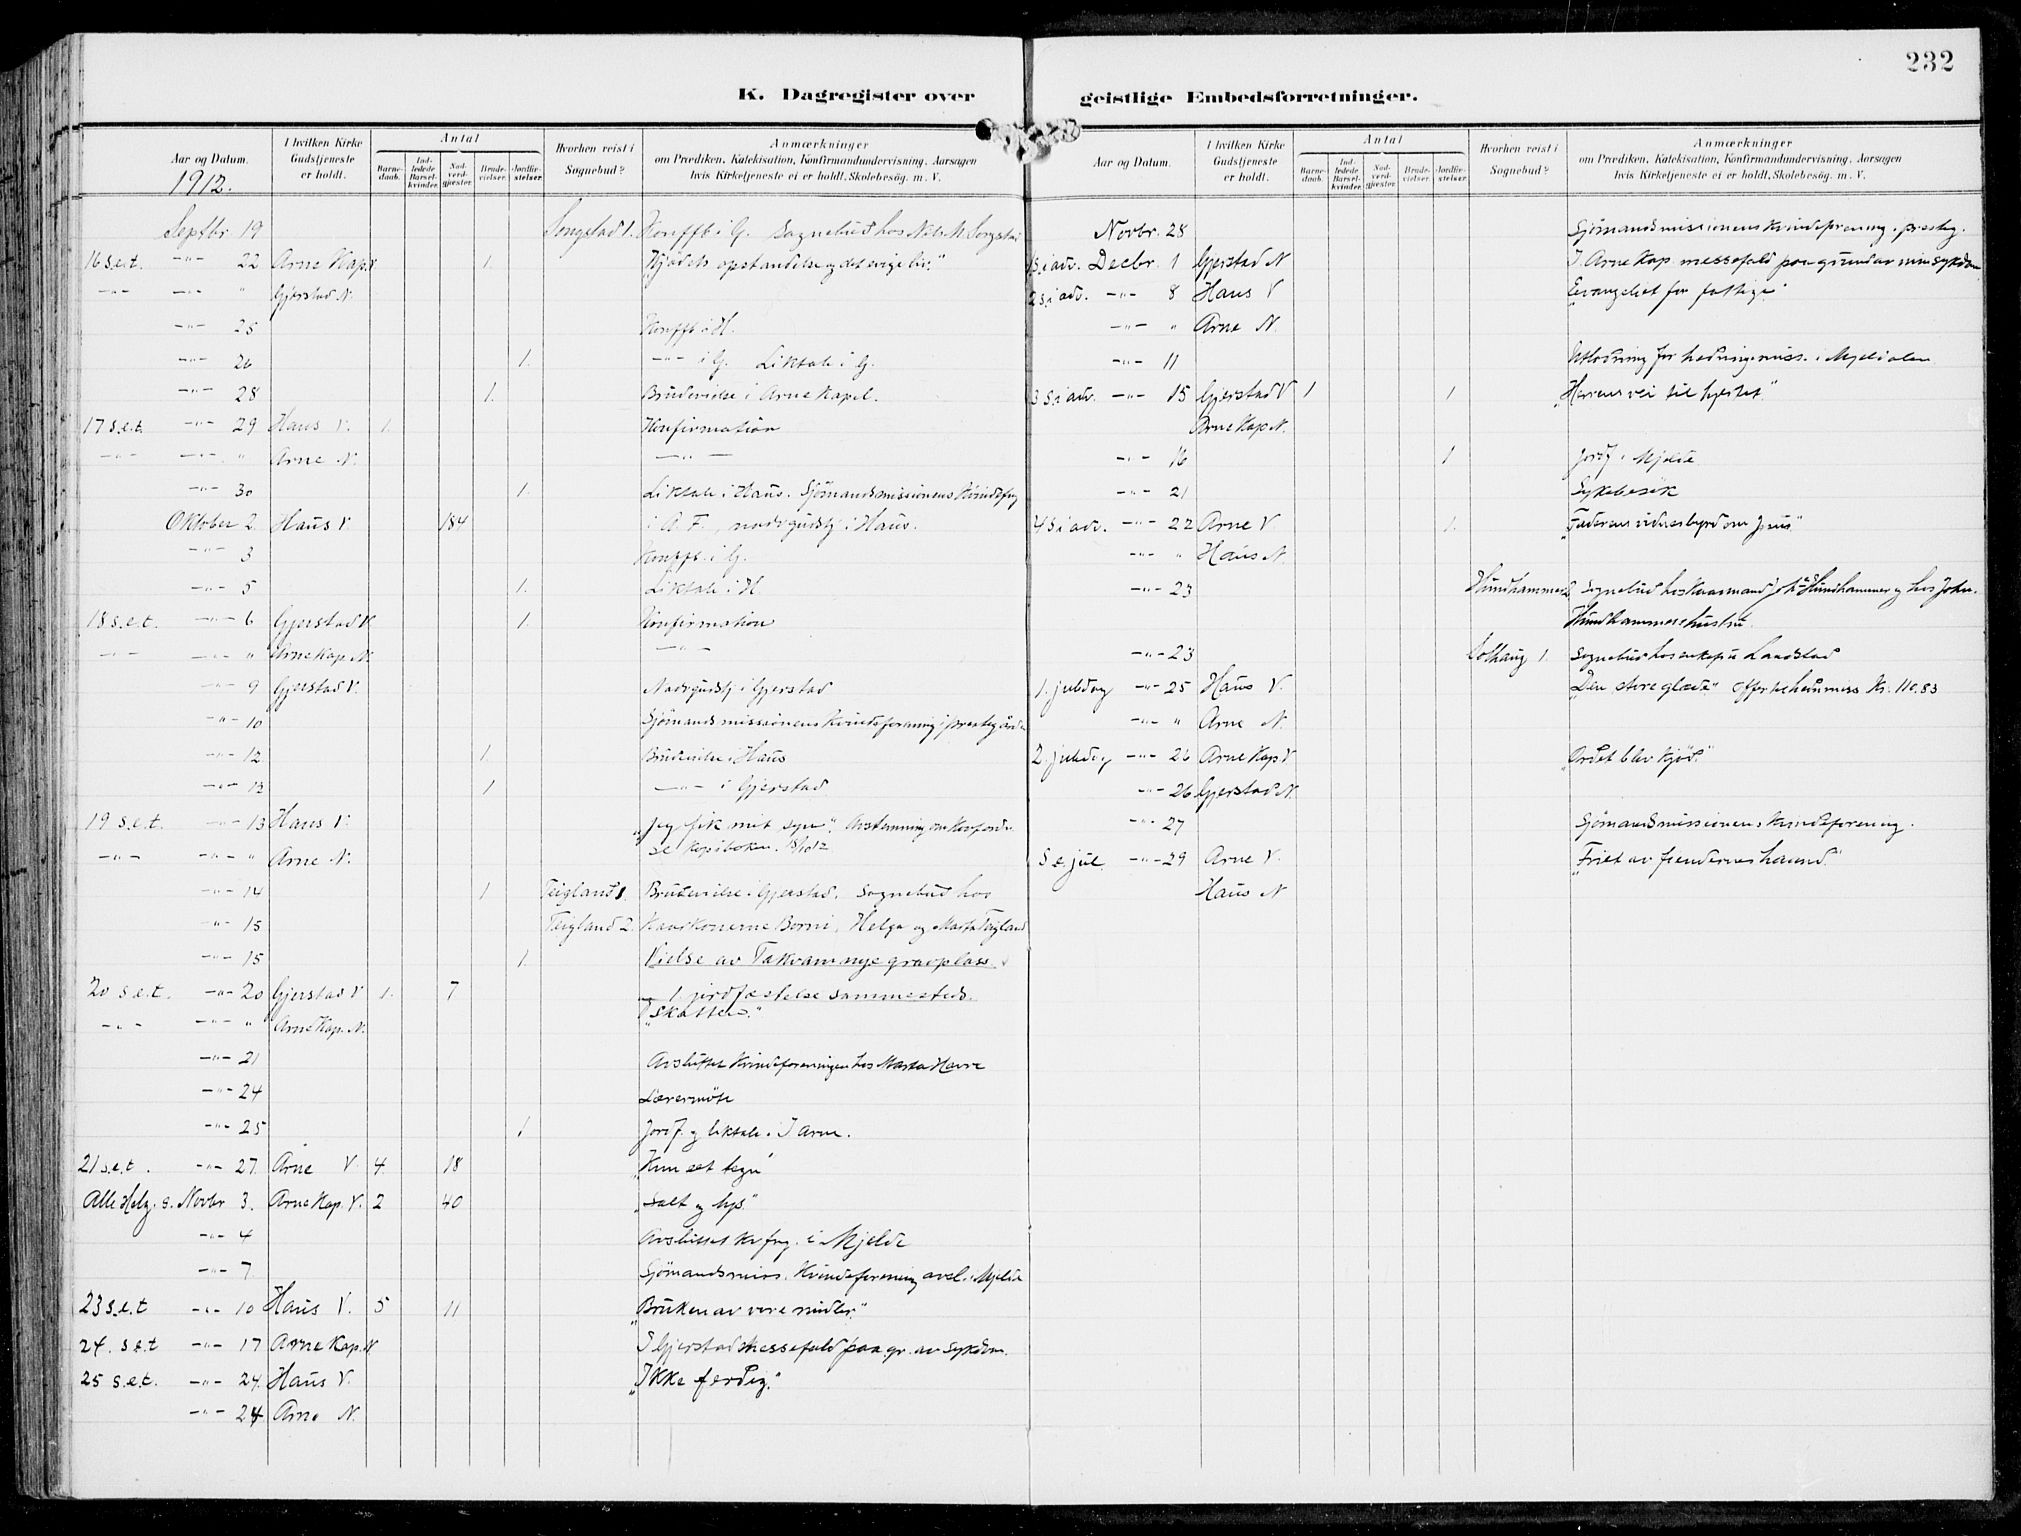 232
K. Dagregister over geistlige Embedsforretninger.
Aar og Datum.
I hvilken Kirke Gudstjeneste er holdt.
Antal
Barnedaab.
Indledede Barselkvinder.
Nadverdgjester.
Brudevielser.
Jordfæstelser.
Hvorhen reist i Sognebud?
Anmærkninger
om Prædiken, Katekisation, Konfirmandundervisning, Aarsagen
hvis Kirketjeneste ei er holdt, Skolebesøg. m. V.
1912.
Septbr 19 Songstad 1. Konffb i G. Sognebud hos Nils M. Songstad
16 s.e.t. -"- 22 Arne Kap. V. 1. "Kjödets opstandelse og det evige liv."
-"- -"- " Gjerstad N.
-"- 25 Konffb i H.
-"- 26 1. -"- i G. Liktale i G.
-"- 28 1. Brudevielse i Arne Kapel.
17 s.e.t. -"- 29 Haus V. 1. Konfirmation
-"- -"- " Arne N. -"-
-"- 30 1. Liktale i Haus. Sjömandsmissionens Kvindefng
Oktober 2. Haus V. 184 i A. F., nadvgudstj i Haus.
-"- 3 Konffb. i G.
-"- 5 1. Liktale i H.
18 s.e.t. -"- 6 Gjerstad V. 1. Konfirmation
-"- -"- " Arne Kap. N. -"-
-"- 9 Gjerstad V. Nadvgudstj i Gjerstad
-"- 10 Sjömandsmissionens Kvindeforening i prestegården
-"- 12. 1 Brudevielse i Haus
-"- 12 1 -"- i Gjerstad
19 s.e.t. -"- 13 Haus V. "Jeg fik mit syn". Avstemning om
se kopiboken.
-"- -"- " Arne N.
-"- 14 1 Teigland 1. Brudevielse i Gjerstad. Sognebud hos
-"- 15 Teigland 2. Kaarkonerne Borni, Helga og Marta Teigland
-"- 15 1. Vielse av Takvam nye gravplass.
1 jordfæstelse sammesteds.
20 s.e.t. -"- 20 Gjerstad V 1. 7 "Skatten."
-"- -"- " Arne Kap. N.
-"- 21 Avsluttet Kvindeforeningen hos Marta Havre
-"- 24 Lærermöte
-"- 25 1 Jordf. og liktale i Y Arne.
21 s.e.t. -"- 27. Arne V. 4. 18 "Kun eet tegn"
Alle Helg. s. Novbr 3. Arne Kap. V. 2 40 "Salt og lys"
-"- 4 Avsluttet kv fng. i Mjelde
-"- 7. Sjömandsmiss. Kvindeforening avsl. i Mjelde
23 s.e.t -"- 10 Haus V. 5 11 "Bruken av vore midler."
24. s.e.t -"- 17 Arne Kap. V I Gjerstad messefald paa gr. av sykdom.
25 s.e.t. -"- 24. Haus V. "Ikke færdig."
-"- 24 Arne N.
Aar og Datum.
I hvilken Kirke Gudstjeneste er holdt.
Antal
Barnedaab.
Indledede Barselkvinder.
Nadverdgjester.
Brudevielser.
Jordfæstelser.
Hvorhen reist i Sognebud?
Anmærkninger
om Prædiken, Katekisation, Konfirmandundervisning, Aarsagen
hvis Kirketjeneste ei er holdt, Skolebesøg. m. V.
Novbr. 28 Sjömandsmissionens Kvindeforening i presteg.
1 s. i adv. Decbr. 1 Gjerstad N I Arne Kap. messefald paa grund av min sykdom
2 s. i adv. -"- 8 Haus V "Evangeliet for fattige"
-"- " Arne N.
-"- 11 Utlodning for hedningemiss. i Mjeldalen
3 s i adv. -"- 15 Gjerstad V 1 1 "Herrens vei til hjertet"
Arne Kap N.
-"- 16 1 Jordf. i Mjelde
-"- 21 Sykebesök
4 s i adv. -"- 22 Arne V. 1. "Faderens vidnesbyrd om Jesus"
-"- " Haus N.
-"- 23 Hundhammer 2. Sognebud hos Kaarmand Hundhammer og hos John
Hundhammers hustru.
-"- 23 1. Sognebud hos Landstad
1. juledag -"- 25 Haus V. "Den store glæde" Offer Kr. 110.83
-"- " Arne N.
2. juledag -"- 26 Arne Kap V "Ordet blev kjöd."
-"- 26 Gjerstad N.
-"- 27 Sjömandsmissionens kvindeforening.
S e. jul -"- 29 Arne V. "Friet av fiendernes haand."
Haus N